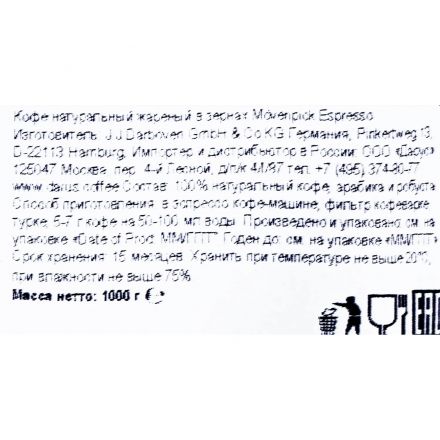 Кофе натуральный жареный в зернах Mövenpick Espresso
Изготовитель: J.J.Darboven GmbH & Co KG Германия, Pinkertweg 13,
D-22113 Hamburg. Импортер и дистрибьютор в России: ООО «Дарус»
125047 Москва, пер. 4-й Лесной, д/пк 4И/87 тел. +7 (495) 374-80-77
www.darus.coffee Состав: 100% натуральный кофе, арабика и робуста
Способ приготовления: в эспрессо кофе-машине, фильтр кофеварке
турке, 5-7 г кофе на 50-100 мл воды. Произведено и упаковано: см. на
упаковке «Date of Prod. ММ/ГГГГ» Годен до: см. на упаковке
Срок хранения: месяцев. Хранить при температуре не выше 20°С,
при влажности не выше 75%
Масса нетто: 1000 г